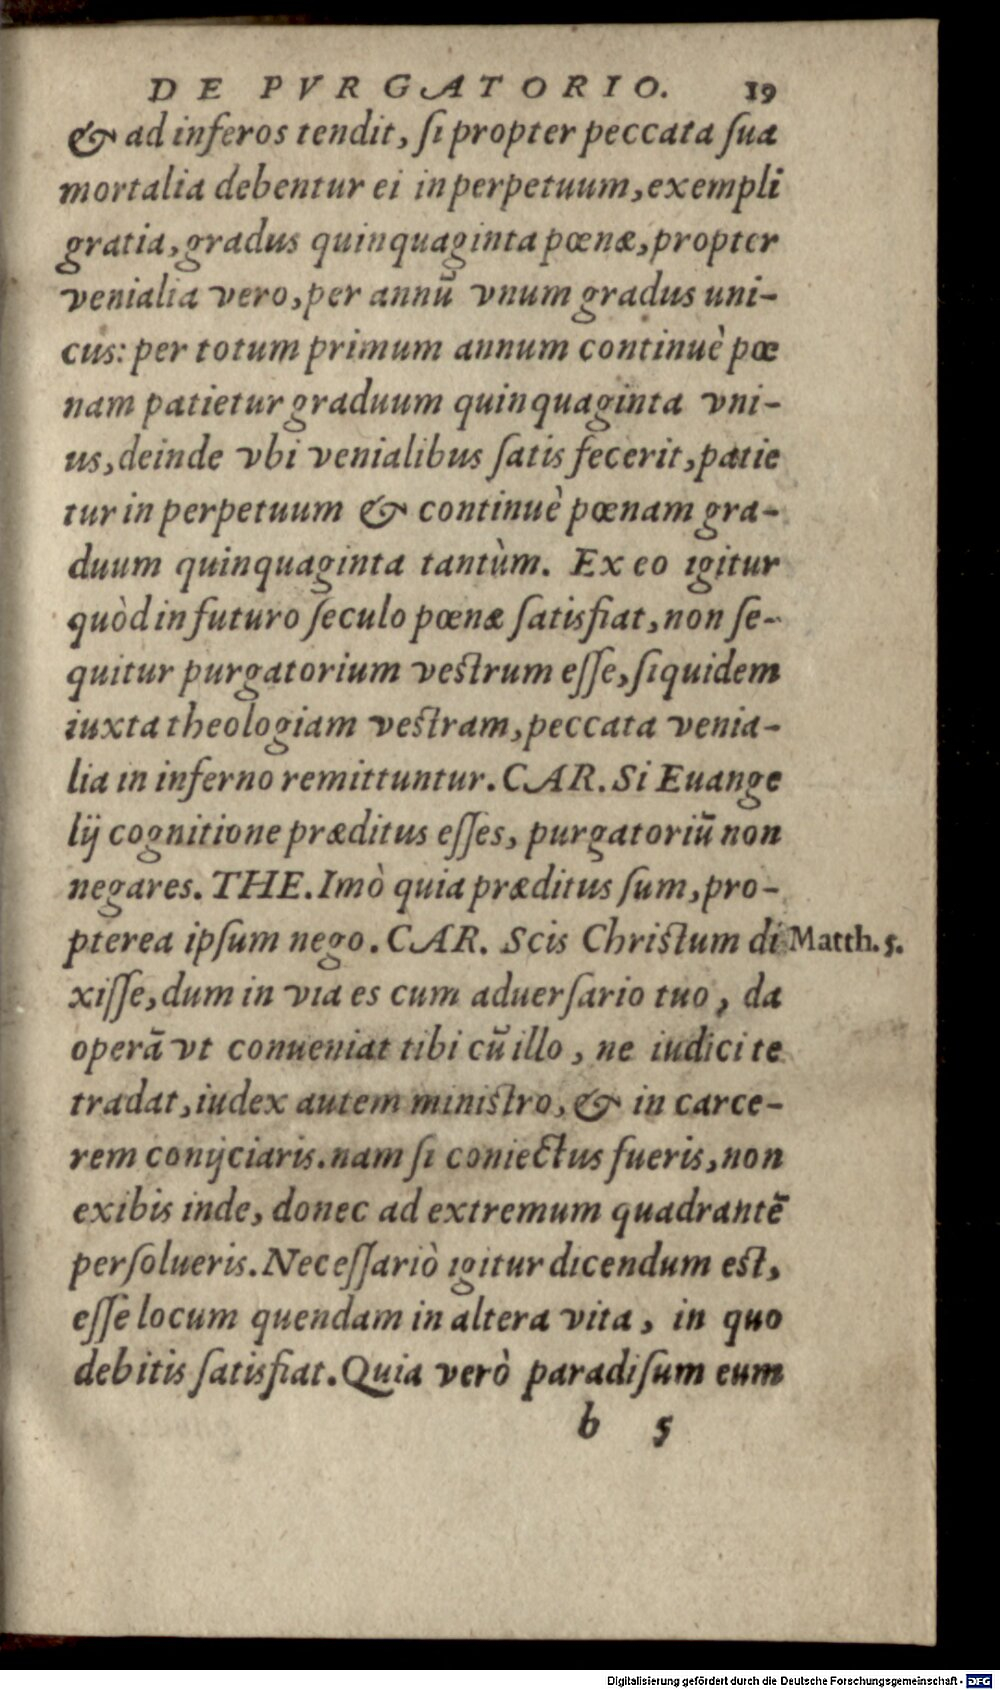 DE PVRGATORIO. 19
& ad inferos tendit, si propter peccata sua
mortalia debentur ei in perpetuum, exempli
gratia, gradus quinquaginta pœnæ, propter
venialia vero, per annũ vnum gradus uni-
cus: per totum primum annum continuè pœ
nam patietur graduum quinquaginta vni-
us, deinde vbi venialibus satis fecerit, patie
tur in perpetuum & continuè pœnam gra-
duum quinquaginta tantùm. Ex eo igitur
quòd in futuro seculo pœnæ satisfiat, non se-
quitur purgatorium vestrum esse, siquidem
iuxta theologiam vestram, peccata venia-
lia in inferno remittuntur. CAR. Si Euange
lij cognitione præditus esses, purgatoriũ non
negares. THE. Imò quia præditus sum, pro-
pterea ipsum nego. CAR. Scis Christum di Matth. 5.
xisse, dum in via es cum aduersario tuo, da
operã vt conueniat tibi cũ illo, ne iudici te
tradat, iudex autem ministro, & in carce-
rem conijciaris. nam si coniectus fueris, non
exibis inde, donec ad extremum quadrantẽ
persolueris. Necessariò igitur dicendum est,
esse locum quendam in altera vita, in quo
debitis satisfiat. Quia verò paradisum eum
b 5
Digitalisierung gefördert durch die Deutsche Forschungsgemeinschaft - DFG